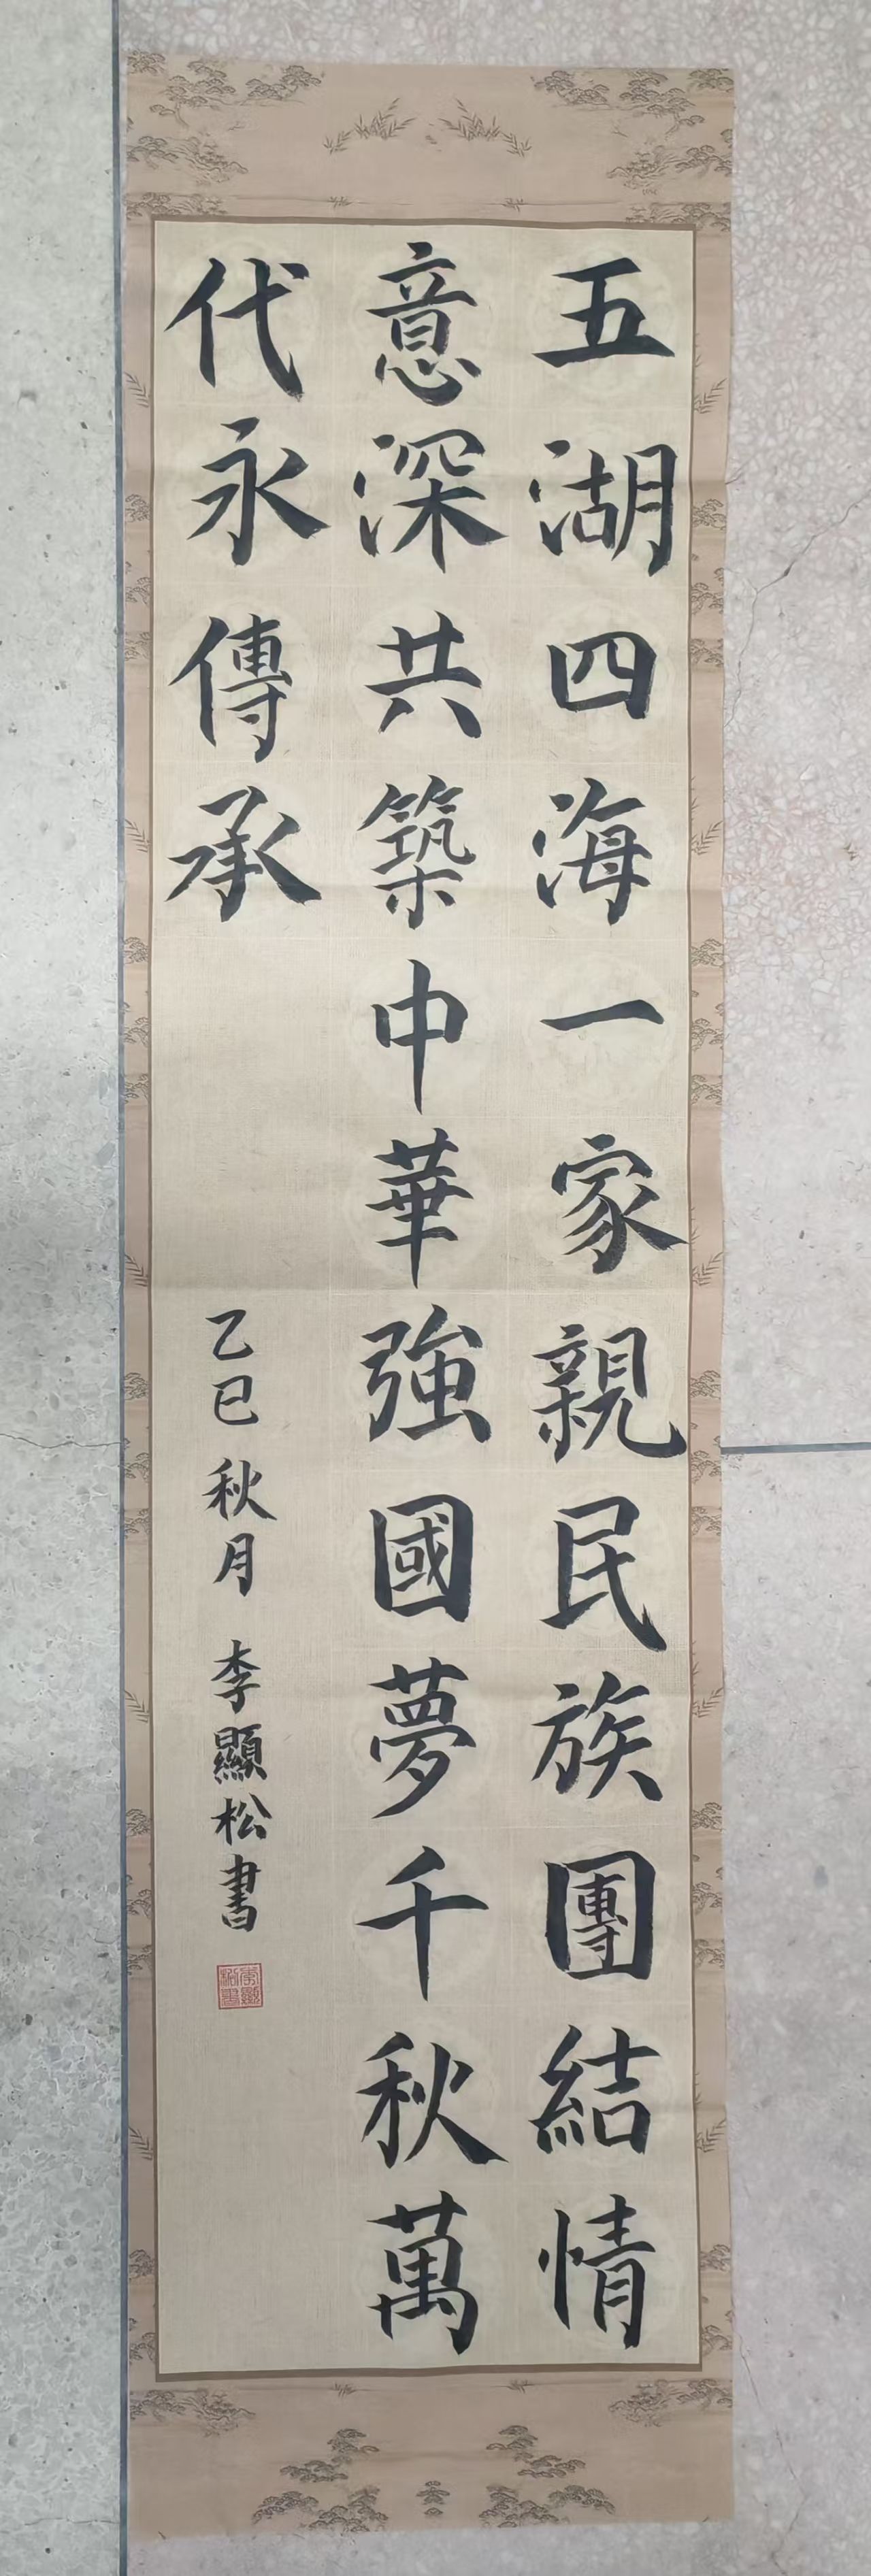 五湖四海一家親民族團結情
意深共築中華強國夢千秋萬
代永傳承
乙巳秋月 李顯松書